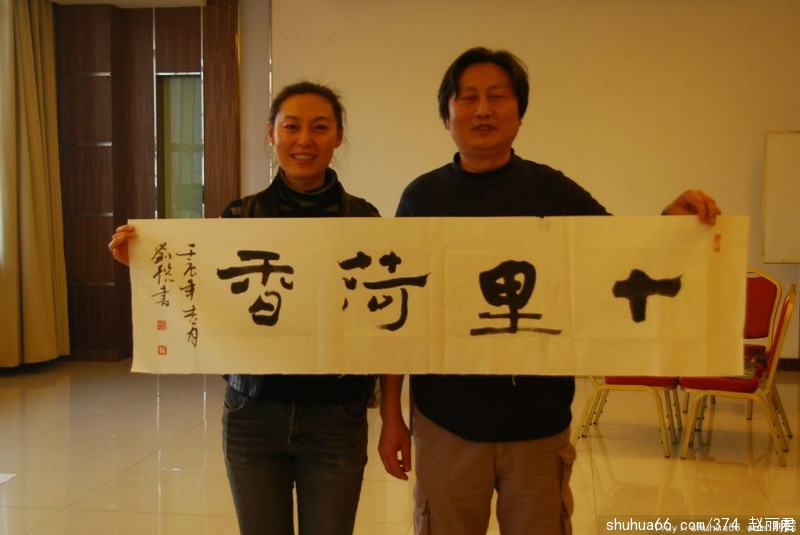 十里荷香
壬辰年春月
shuhua66.com/374 赵丽君